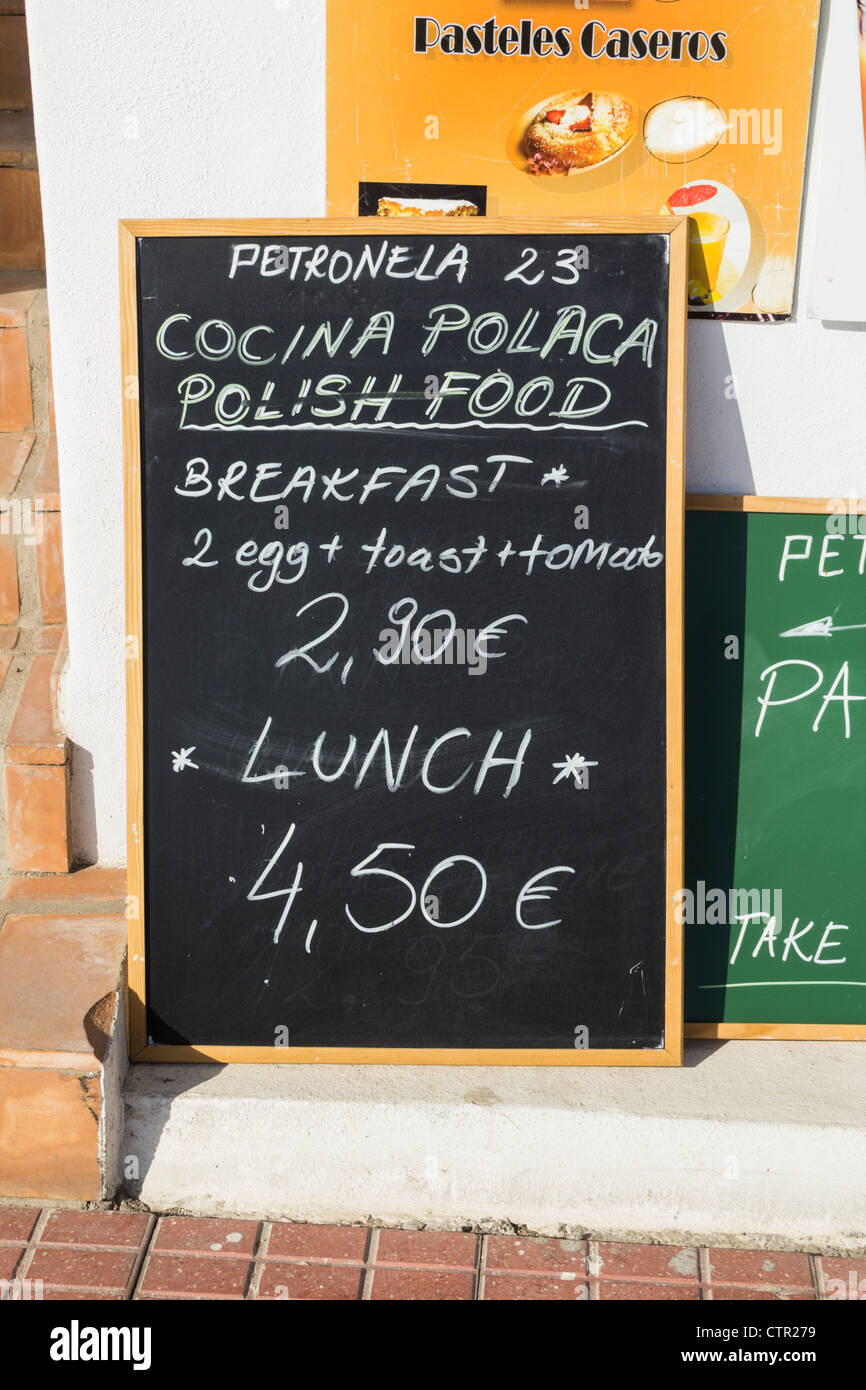 Pasteles Caseros
PETRONELA 23
COCINA POLACA
POLISH FOOD
BREAKFAST *
2 egg + toast + tomato
2,90 €
* LUNCH *
4,50 €
PET
PA
TAKE
alamy
Image ID: CTR279
www.alamy.com